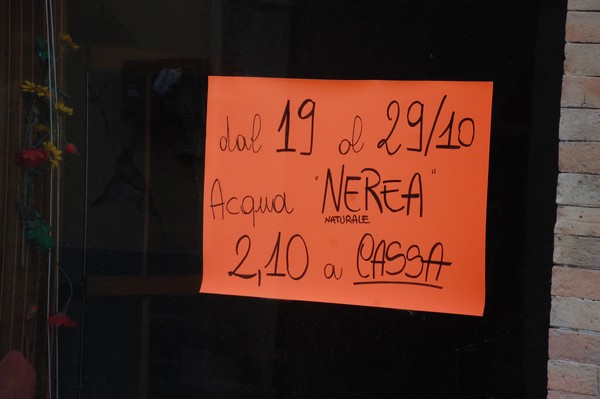 dal 19 al 29/10
Acqua "NEREA"
NATURALE
2,10 a CASSA